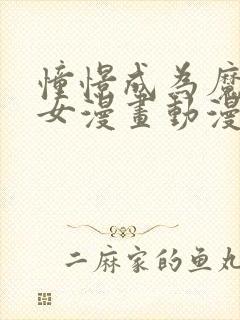 憧憬成為魔
女漫畫動漫
二麻家的鱼丸